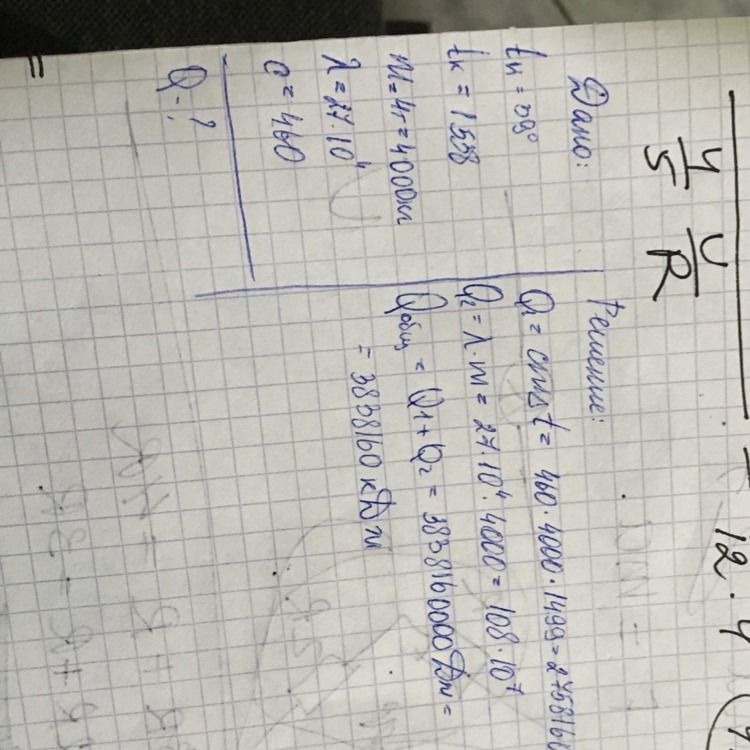 Дано:
tн = 39°
tк = 1538
m=4т=4000кг
λ=27·10⁴
c=460
Q-?
Решение:
Q₁ = cm△t = 460·4000·1499=2758160
Q₂ = λ·m = 27·10⁴·4000 = 108·10⁷
Qобщ = Q1+Q₂ = 3838160000Дж =
= 3838160 кДж
U/R
12·4